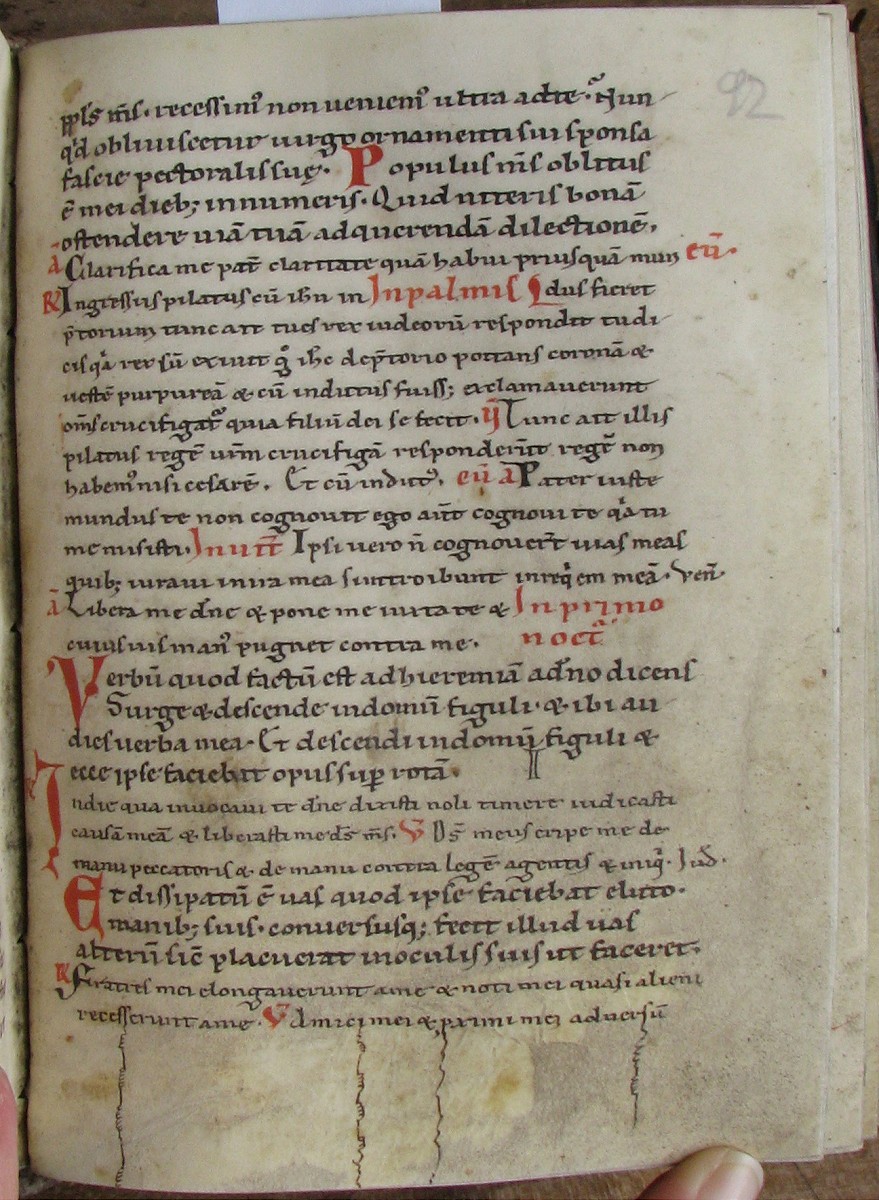 92
ppl's m̄s. recessim' non veniem' ultra ad te. Nun
q'd obliviscetur virgo ornamenti sui sponsa
fascie pectoralis suę. Populus m̄s oblitus
ē mei dieb; innumeris. Quid niteris bonā
ostendere uiā tuā ad querendā dilectionē.
ā Clarifica me pat̄ claritate quā habui priusquā mun eū.
R Ingressus pilatus cū ihū in In palmis dus fieret
p̄torium tunc ait tu es rex iudeorū respondit tu di
cis q'a rex sū exiuit g° ihc de p̄torio portans coronā &
uestē purpureā & cū indutus fuiss; exclamauerunt
om̄s crucifigat' quia filiū dei se fecit. V Tunc ait illis
pilatus regē urm crucifigā responder̄t regē non
habem' nisi cesarē. Et cū indut'. eū ā Pater iuste
mundus te non cognouit ego aūt cognoui te q'a tu
me misisti. Inuit̄ Ipsi uero n̄ cognouer̄t uias meas
quib; iuraui in ira mea si introibunt in req̄em meā. Ven̄.
ā Libera me dn̄e & pone me iuxta te & In primo
cuiusuis man' pugnet contra me. noct̄
Verbū quod factū est ad hieremiā a dn̄o dicens
Surge & descende in domū figuli. & ibi au
dies uerba mea. Et descendi in domū figuli &
ecce ipse faciebat opus sup̄ rotā.
R In die qua inuocaui te dn̄e dixisti noli timere iudicasti
causā meā & liberasti me ds̄ m̄s. V Ds̄ meus eripe me de
manu peccatoris & de manu contra legē agentis & iniq'. Iud̄.
Et dissipatū ē uas quod ipse faciebat e luto.
manib; suis. conuersusq; fecit illud uas
alterū sic̄ placuerat in oculis suis ut faceret.
R Fratres mei elongauerunt a me & noti mei quasi alieni
recesserunt a me. V Amici mei & p̄ximi mei aduersū